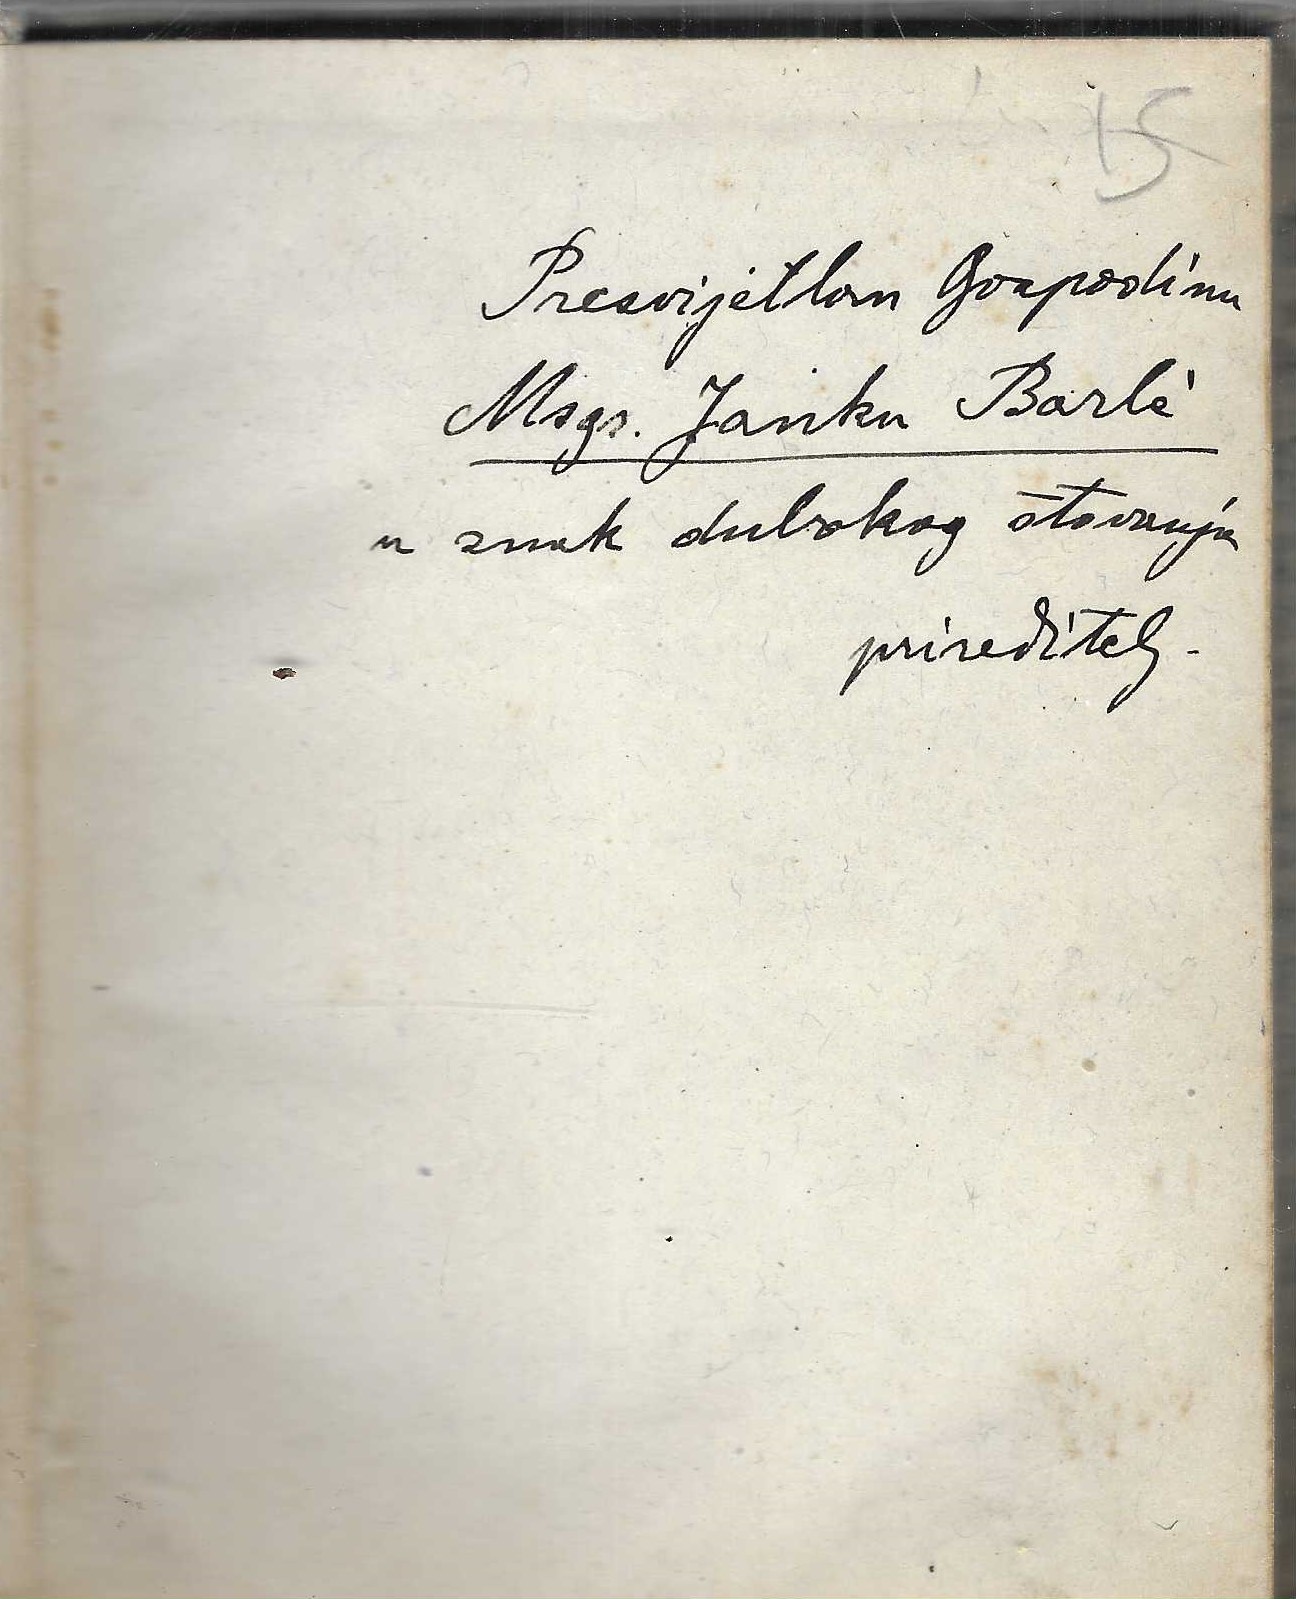 15
Presvijetlom Gospodinu
Msgr. Janku Barlè
u znak dubokog štovanja
priređitelj.